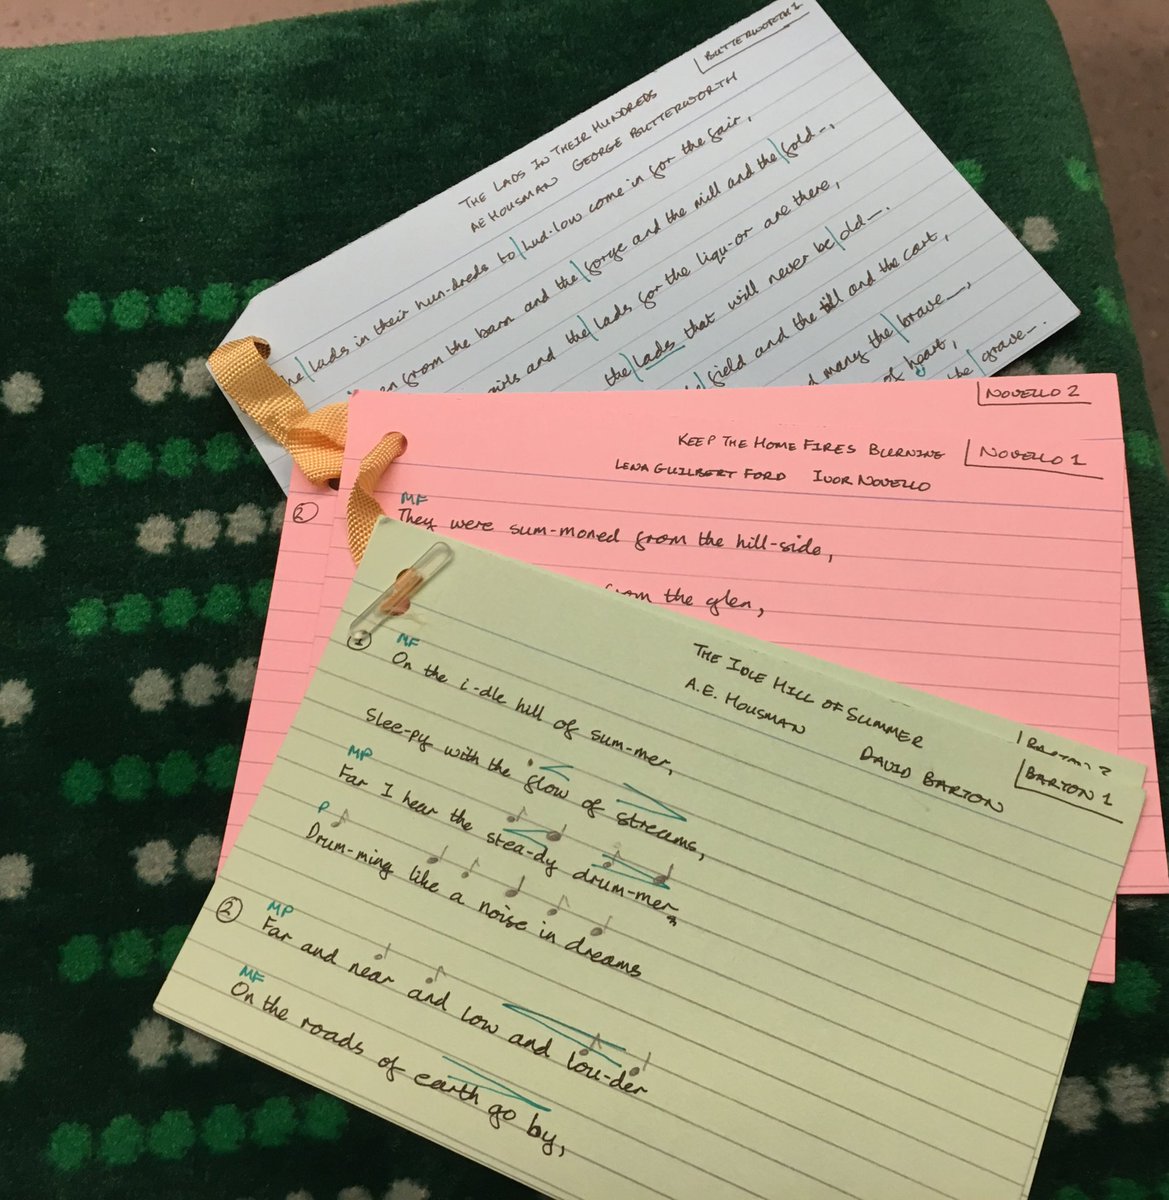 BUTTERWORTH 1
THE LADS IN THEIR HUNDREDS
AE HOUSMAN GEORGE BUTTERWORTH
lads in their hun-dreds to lud-low come in for the fair,
from the barn and the forge and the mill and the fold—,
and the lads for the liqu-or are there,
the lads that will never be old—.
field and the till and the cart,
many the brave—,
of heart,
the grave—.
NOVELLO 2
NOVELLO 1
KEEP THE HOME FIRES BURNING
LENA GUILBERT FORD IVOR NOVELLO
2
MF
They were sum-moned from the hill-side,
from the glen,
THE IDLE HILL OF SUMMER
A.E. HOUSMAN DAVID BARTON
BARTON 1
1 MF
On the i-dle hill of sum-mer,
Slee-py with the flow of streams,
MP
Far I hear the stea-dy drum-mer,
P
Drum-ming like a noise in dreams
2 MP
Far and near and low and lou-der
MF
On the roads of earth go by,